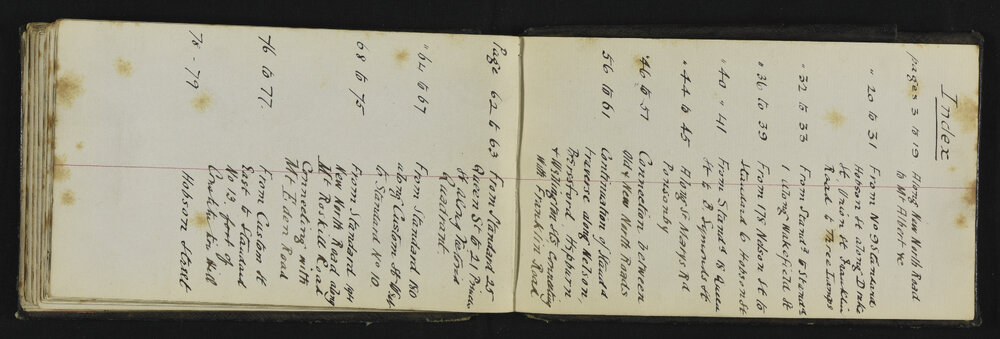 Index
pages 3 to 19 Along New North Road
to Mt Albert &c
" 20 to 31 From No 9 Standard
Hobson St along Drake
St Union St Franklin
Road to Three Lamps
" 32 to 33 From Stand 3 to Stand 4
1 along Wakefield St
" 36 to 39 From 178 Nelson St to
Standard 6 Hobson St
" 40 " 41 From Stand 18 Queen
St to 2 Symonds St
" 44 to 45 Along St Marys Rd
Ponsonby
" 46 to 57 Connection between
Old & New North Roads
56 to 61 Continuation of Stand
traverse along Nelson
Pratt
& Wellington Sts Connecting
with Franklin Road
Page 62 to 63 From Standard 25
Queen St to 21 Princes
St along Victoria
Quadrant
" 64 to 67 From Standard 150
along Custom St West
to Standard No 10
68 to 75 From Standard 194
New North Road along
Mt Roskill Road
Connecting with
Mt Eden Road
76 to 77 From Custom St
East to Standard
No 13 foot of
Constitution Hill
78 - 79 Hobson Street